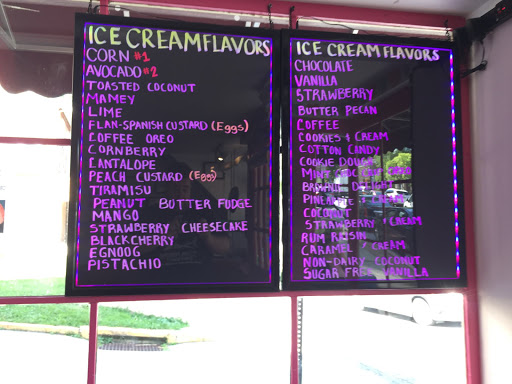 ICE CREAM FLAVORS
CORN #1
AVOCADO #2
TOASTED COCONUT
MAMEY
LIME
FLAN-SPANISH CUSTARD (Eggs)
COFFEE OREO
CORNBERRY
CANTALOPE
PEACH CUSTARD (Eggs)
TIRAMISU
PEANUT BUTTER FUDGE
MANGO
STRAWBERRY CHEESECAKE
BLACKCHERRY
EGNOOG
PISTACHIO
ICE CREAM FLAVORS
CHOCOLATE
VANILLA
STRAWBERRY
BUTTER PECAN
COFFEE
COOKIES & CREAM
COTTON CANDY
COOKIE DOUGH
MINT
DELIGHT
PINEAPPLE
COCONUT
STRAWBERRY / CREAM
RUM RAISIN
CARAMEL / CREAM
NON-DAIRY COCONUT
SUGAR FREE VANILLA